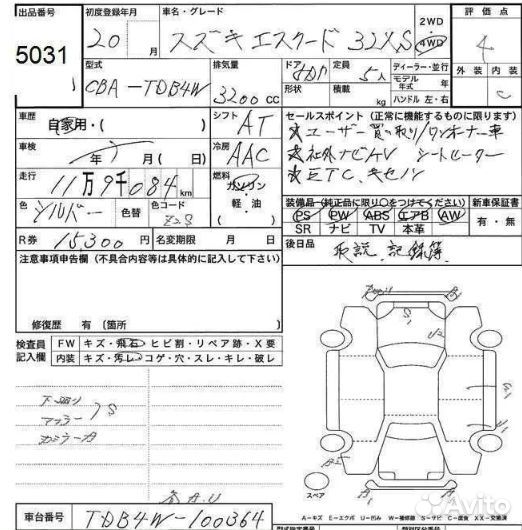 出品番号 初度登録年月 車名・グレード 評価点
5031 20 月 スズキ エスクード 32XS 2WD 4WD 4
型式 排気量 ドア 定員 ディーラー・並行 外装 内装
CBA-TDB4W 3200 cc 形状 5人 積載 kg モデル年式 年 ハンドル 左・右 C
車歴 自家用・( ) シフト AT
セールスポイント (正常に機能するものに限ります)
車検 年 月(日) 冷房 AAC
☆ユーザー買い取り/ワンオーナー車
☆社外ナビ&TV シートヒーター
☆ETC、キセノン
走行 11万9千084 km 燃料 ガソリン 軽・油 ( )
色 シルバー 色替 色コード Z2S
装備品 (純正品に限り○をつけてください) 新車保証書
PS PW ABS エアB AW 有・無
SR ナビ TV 本革
R券 15,300 円 名変期限 月 日
後日品 取説、記録簿
注意事項申告欄 (不具合内容等は具体的に記入して下さい)
修復歴 有 (箇所
検査員記入欄 FW キズ・飛石・ヒビ割・リペア跡・X要
内装 キズ・汚レ・コゲ・穴・スレ・キレ・破レ
下廻り
マフラー S
スペア
A-キズ E-エクボ U-凹み W-補修跡 S-サビ C-腐食 X-交換済
車台番号 TDB4W-100364
Avito